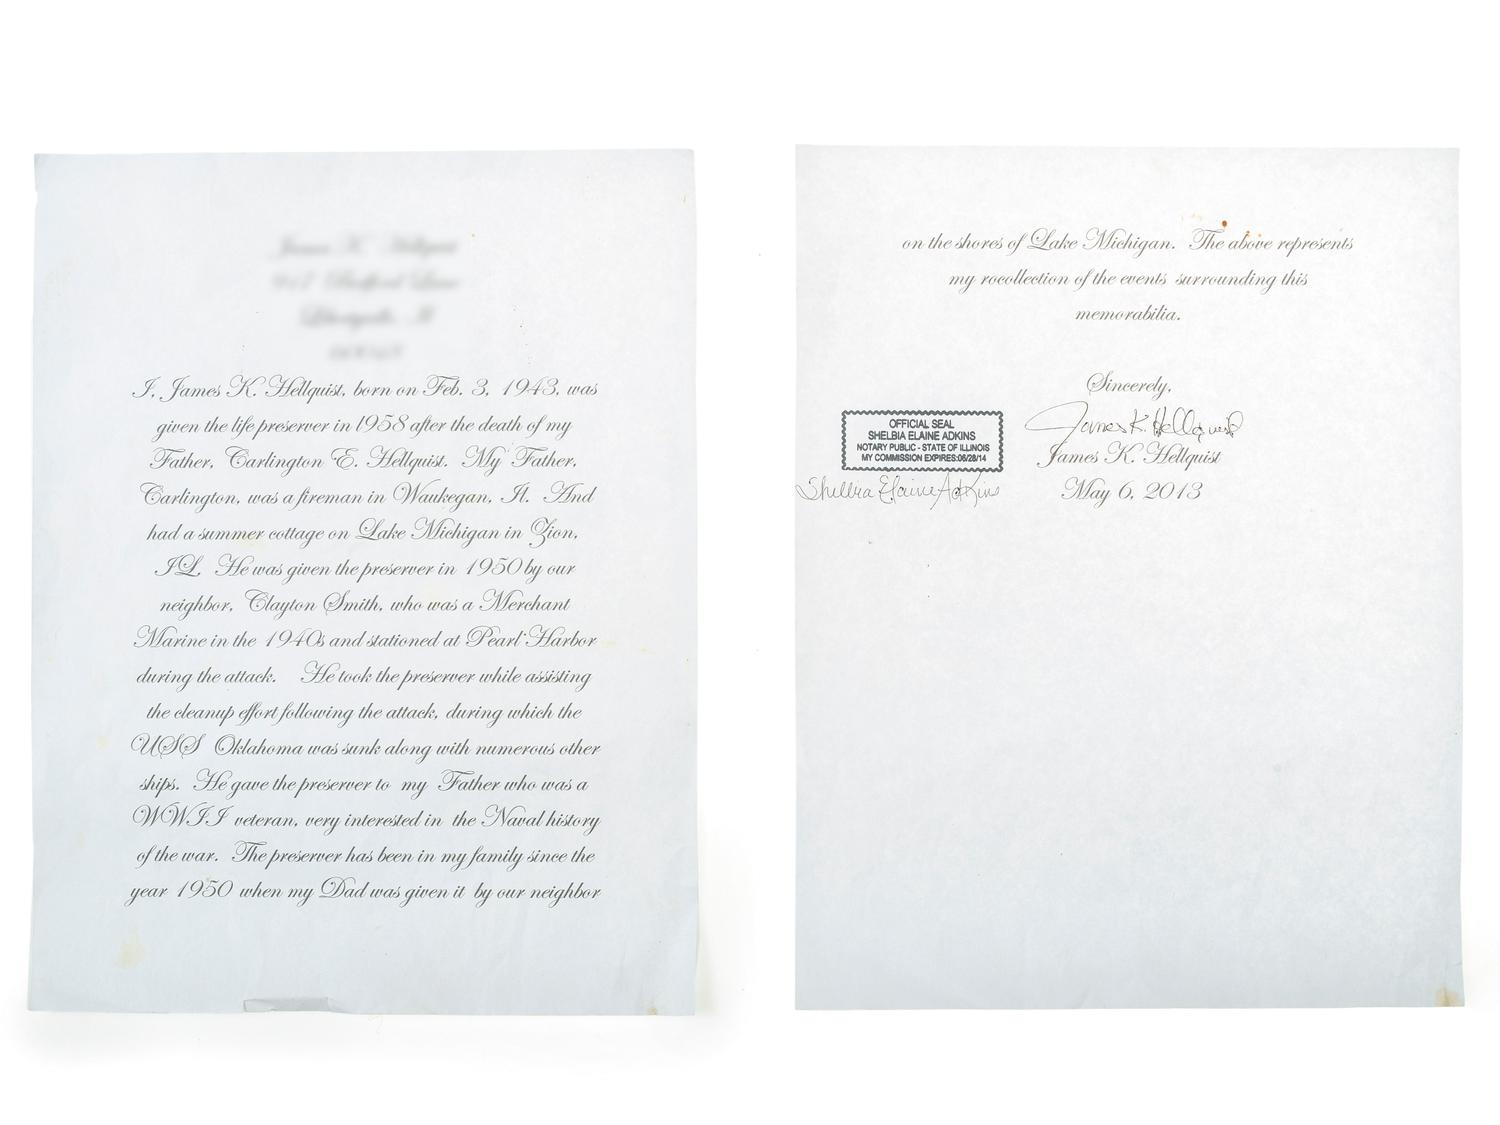 James K. Hellquist
I, James K. Hellquist, born on Feb. 3, 1943, was
given the life preserver in 1958 after the death of my
Father, Carlington E. Hellquist. My Father,
Carlington, was a fireman in Waukegan, Il. And
had a summer cottage on Lake Michigan in Zion,
IL. He was given the preserver in 1950 by our
neighbor, Clayton Smith, who was a Merchant
Marine in the 1940s and stationed at Pearl Harbor
during the attack. He took the preserver while assisting
the cleanup effort following the attack, during which the
USS Oklahoma was sunk along with numerous other
ships. He gave the preserver to my Father who was a
WWII veteran, very interested in the Naval history
of the war. The preserver has been in my family since the
year 1950 when my Dad was given it by our neighbor
on the shores of Lake Michigan. The above represents
my rocollection of the events surrounding this
memorabilia.
Sincerely,
James K. Hellquist
James K. Hellquist
May 6, 2013
OFFICIAL SEAL
SHELBIA ELAINE ADKINS
NOTARY PUBLIC - STATE OF ILLINOIS
MY COMMISSION EXPIRES:06/28/14
Shelbia Elaine Adkins